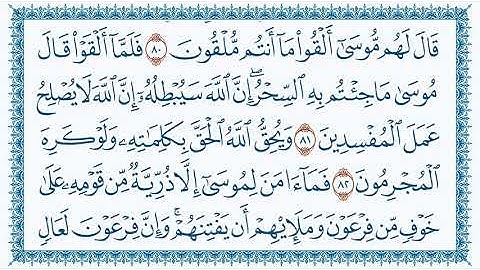 قَالَ لَهُم مُّوسَىٰٓ أَلْقُوا۟ مَآ أَنتُم مُّلْقُونَ ۝٨٠ فَلَمَّآ أَلْقَوْا۟ قَالَ
مُوسَىٰ مَا جِئْتُم بِهِ ٱلسِّحْرُ ۖ إِنَّ ٱللَّهَ سَيُبْطِلُهُۥٓ إِنَّ ٱللَّهَ لَا يُصْلِحُ
عَمَلَ ٱلْمُفْسِدِينَ ۝٨١ وَيُحِقُّ ٱللَّهُ ٱلْحَقَّ بِكَلِمَٰتِهِۦ وَلَوْ كَرِهَ
ٱلْمُجْرِمُونَ ۝٨٢ فَمَآ ءَامَنَ لِمُوسَىٰٓ إِلَّا ذُرِّيَّةٌ مِّن قَوْمِهِۦ عَلَىٰ
خَوْفٍ مِّن فِرْعَوْنَ وَمَلَإِي۟هِمْ أَن يَفْتِنَهُمْ ۚ وَإِنَّ فِرْعَوْنَ لَعَالٍ